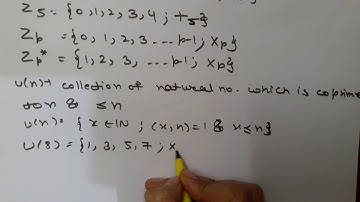 Z5 = {0, 1, 2, 3, 4 ; +5}
Zp = {0, 1, 2, 3, ... p-1 ; xp}
Zp* = {1, 2, 3, ... p-1 ; xp}
U(n) → collection of natural no. which is coprime
to n & ≤ n
U(n) = {x ∈ IN ; (x, n) = 1 & x ≤ n}
U(8) = {1, 3, 5, 7 ; x